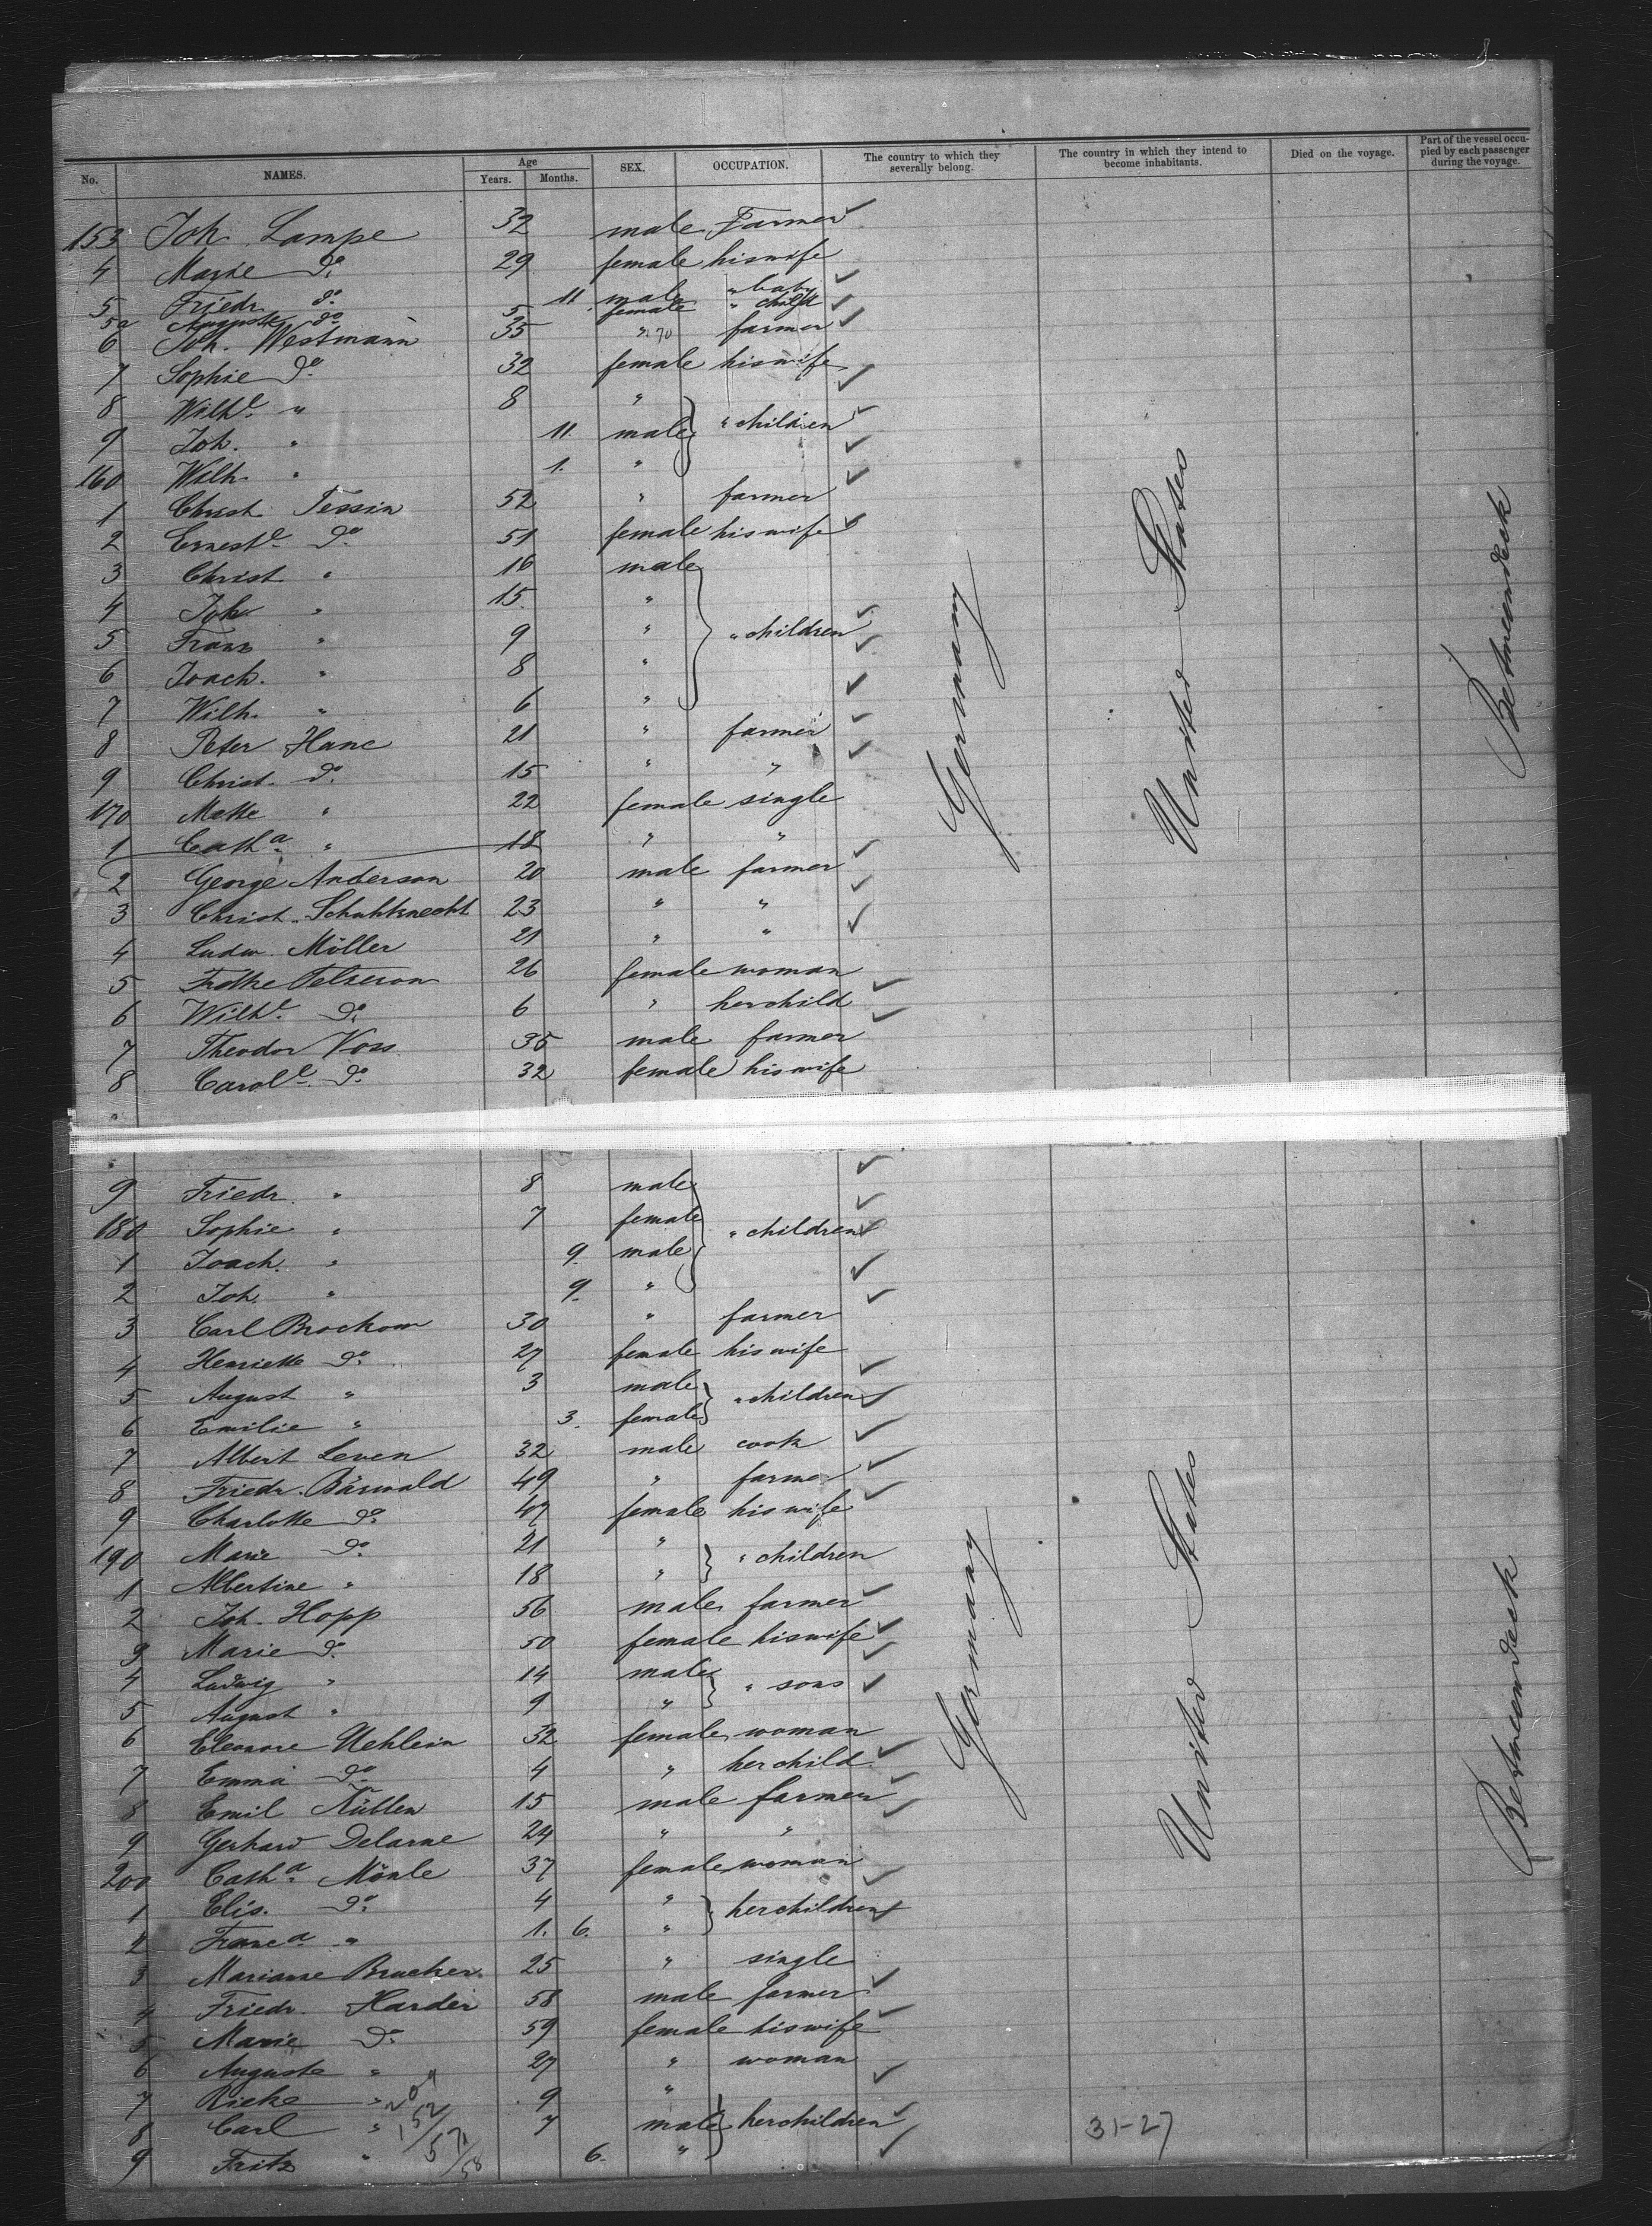 8
No. NAMES. Age Years. Months. SEX. OCCUPATION. The country to which they severally belong. The country in which they intend to become inhabitants. Died on the voyage. Part of the vessel occupied by each passenger during the voyage.
153 Joh. Lampe 32 male Farmer
4 Marie do. 29 female his wife
5 Friedr. do. 11 male " baby
5a Auguste do. 5 female " child
6 Joh. Westmann 35 " farmer
7 Sophie do. 32 female his wife
8 Wilhe. " 8 "
9 Joh. " 11. male " children
160 Wilh. " 1. "
1 Christ. Tessin 52 " farmer
2 Erneste. do. 51 female his wife
3 Christ " 16 male
4 Joh " 15. "
5 Franz " 9 " " children
6 Joach. " 8 "
7 Wilh. " 6 "
8 Peter Hane 21 " farmer
9 Christ. do. 15 " "
170 Mette " 22 female single
1 Catha. " 18 " "
2 George Anderson 20 male farmer
3 Christ. Schuhknecht 23 " "
4 Ludw. Möller 21 " "
5 26 female woman
6 Wilhe. do. 6 " her child
7 Theodor Voss 35 male farmer
8 Carole. do. 32 female his wife
Germany
United States
Betweendeck
9 Friedr. " 8 male
180 Sophie " 7 female " children
1 Joach. " 9. male
2 Joh. " 9. "
3 Carl Brockow 30 " farmer
4 Henriette do. 27 female his wife
5 August " 3 male " children
6 Emilie " 3. female
7 Albert Leven 32 male cook
8 Friedr. Bärwald 49 " farmer
9 Charlotte do. 47 female his wife
190 Marie do. 21 " " children
1 Albertine " 18 "
2 Joh. Hopp 56 male farmer
3 Marie do. 50 female his wife
4 Ludwig " 14 male " sons
5 August " 9 "
6 Eleonore Uehlein 32 female woman
7 Emma do. 4 " her child
8 Emil 15 male farmer
9 Gerhard Delarue 24 " "
200 Catha. 37 female woman
1 Elis. do. 4 " her children
2 Franca. " 1. 6. "
3 Marianne Brucker 25 " single
4 Friedr. Harder 58 male farmer
5 Marie do. 59 female his wife
6 Auguste " 27 " woman
7 Rieke " 9 "
8 Carl " 7 male her children
9 Fritz " 6. "
Germany
United States
Betweendeck
209
152/57
/58
31-27